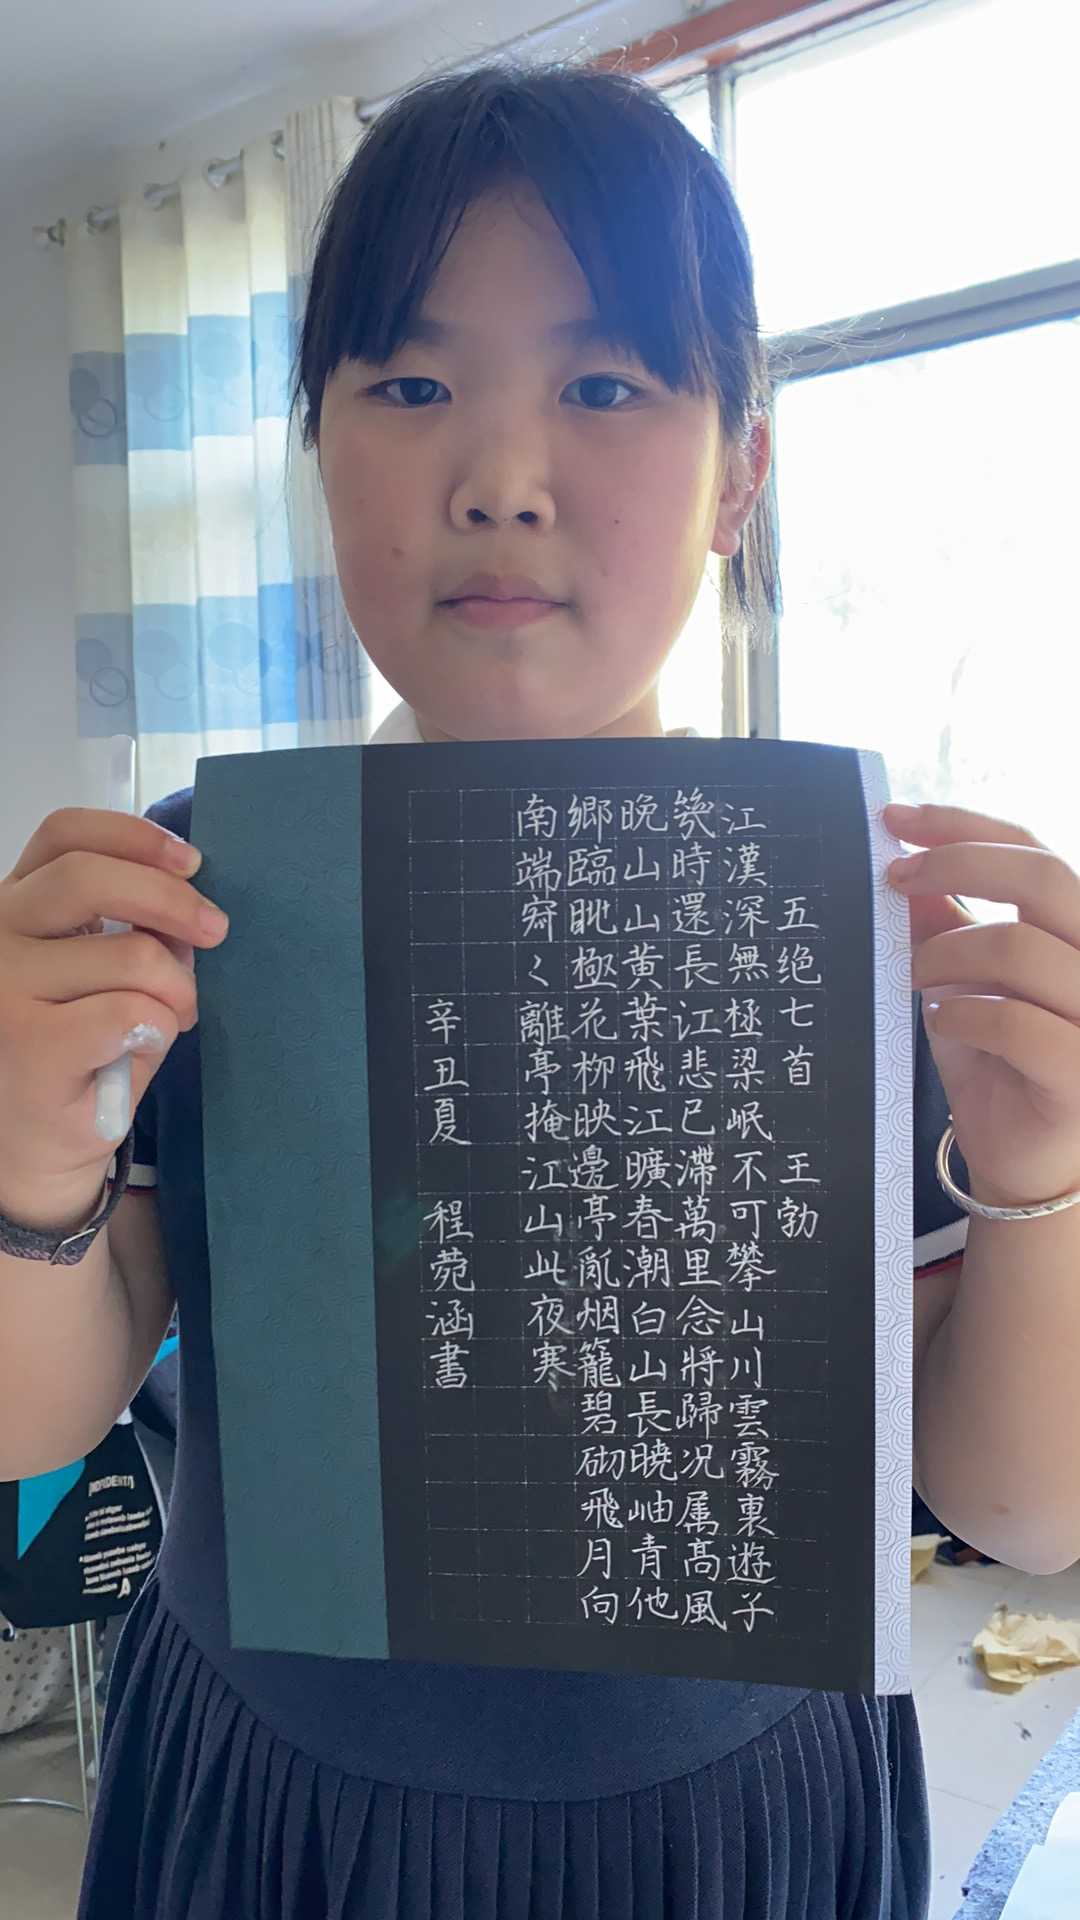 五绝七首 王勃
江漢深無極梁岷不可攀山川雲霧裏遊子
幾時還長江悲已滯萬里念將歸况属高風
晚山山黄葉飛江曠春潮白山長曉岫青他
鄉臨眺極花柳映邊亭亂烟籠碧砌飛月向
南端寂く離亭掩江山此夜寒
辛丑夏 程菀涵書